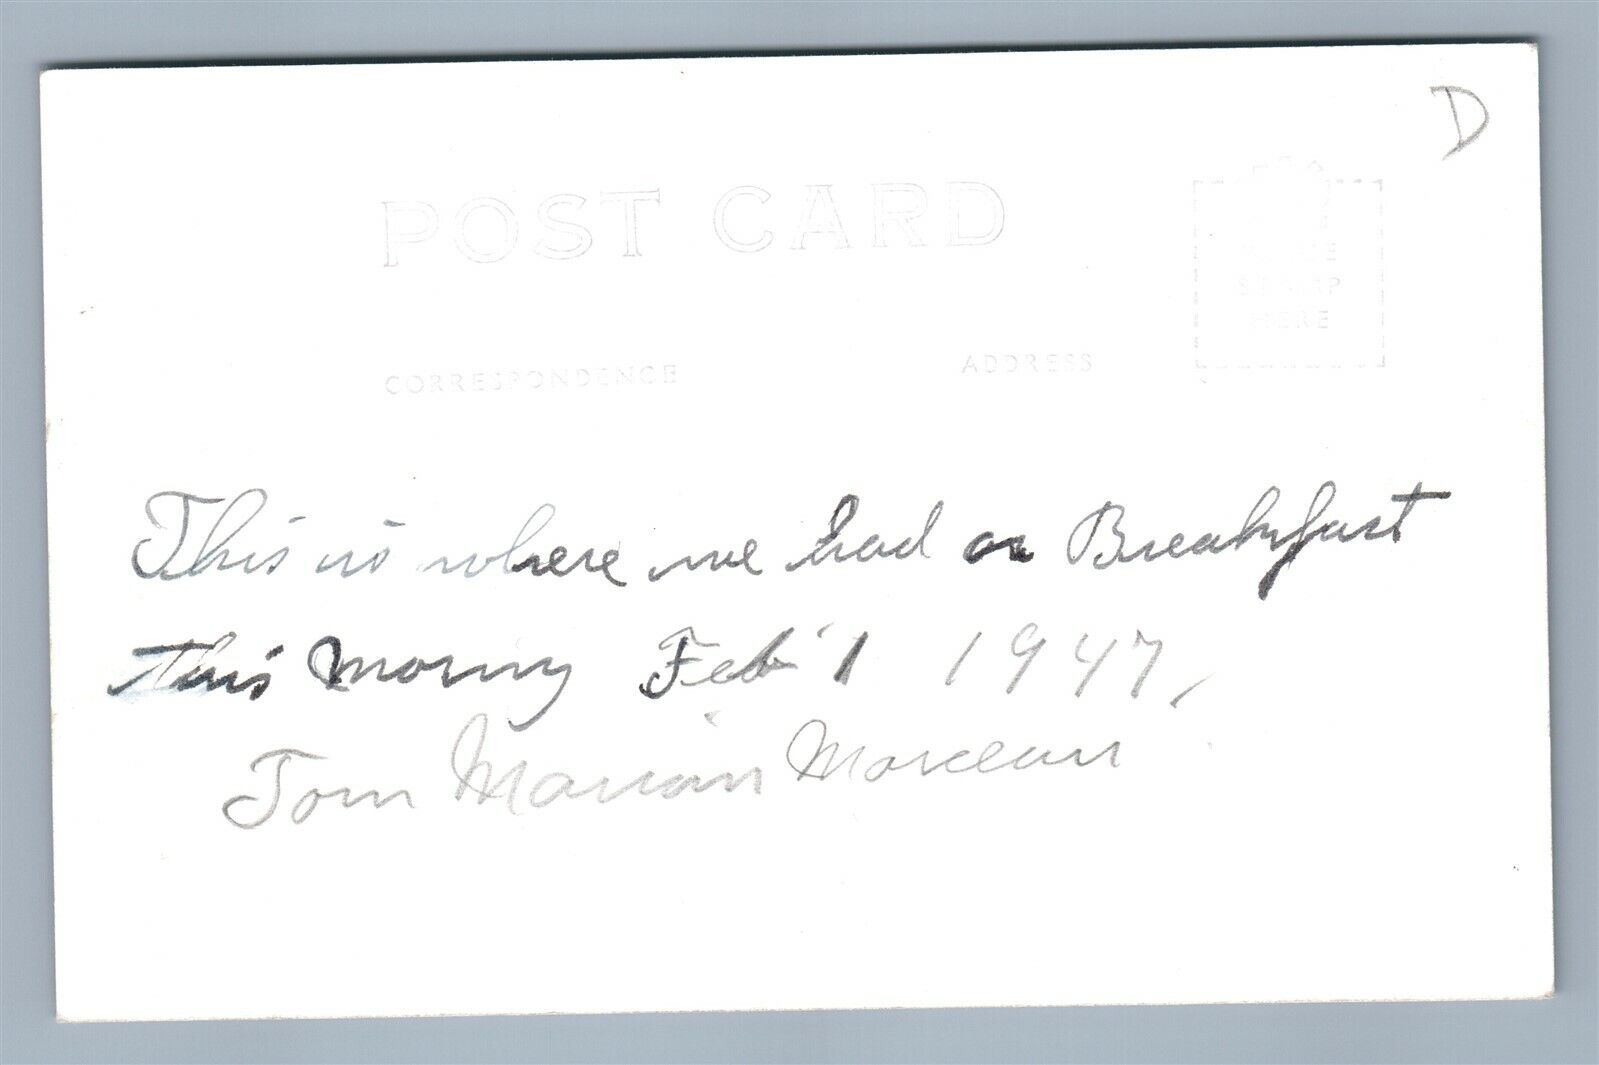 D
POST CARD
PLACE
STAMP
HERE
CORRESPONDENCE
ADDRESS
This is where we had or Breakfast
this Morny Feb 1 1947,
Tom Marian